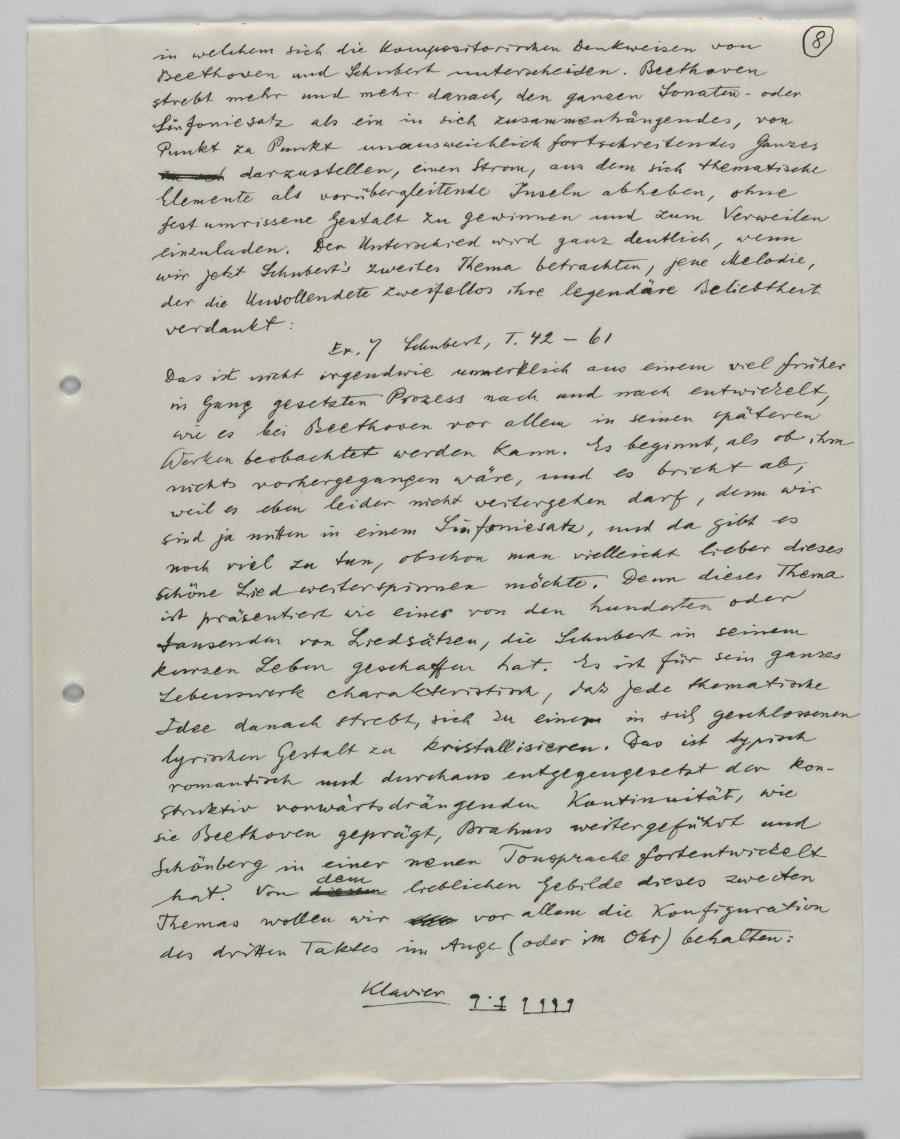 8
in welchem sich die kompositorischen Denkweisen von
Beethoven und Schubert unterscheiden. Beethoven
strebt mehr und mehr danach, den ganzen Sonaten- oder
Sinfoniesatz als ein in sich zusammenhängendes, von
Punkt zu Punkt unausweichlich fortschreitendes Ganzes
darzustellen, einen Strom, aus dem sich thematische
Elemente als vorübergleitende Inseln abheben, ohne
fest umrissene Gestalt zu gewinnen und zum Verweilen
einzuladen. Der Unterschied wird ganz deutlich, wenn
wir jetzt Schubert's zweites Thema betrachten, jene Melodie,
der die Unvollendete zweifellos ihre legendäre Beliebtheit
verdankt:
Ex. 7 Schubert, T. 42 – 61
Das ist nicht irgendwie unmerklich aus einem viel früher
in Gang gesetzten Prozess nach und nach entwickelt,
wie es bei Beethoven vor allem in seinen späteren
Werken beobachtet werden kann. Es beginnt, als ob ihm
nichts vorhergegangen wäre, und es bricht ab,
weil es eben leider nicht weitergehen darf, denn wir
sind ja mitten in einem Sinfoniesatz, und da gibt es
noch viel zu tun, obschon man vielleicht lieber dieses
schöne Lied weiterspinnen möchte. Denn dieses Thema
ist präsentiert wie eines von den hunderten oder
tausenden von Liedsätzen, die Schubert in seinem
kurzen Leben geschaffen hat. Es ist für sein ganzes
Lebenswerk charakteristisch, daß jede thematische
Idee danach strebt, sich zu einem in sich geschlossenen
lyrischen Gestalt zu kristallisieren. Das ist typisch
romantisch und durchaus entgegengesetzt der kon-
struktiv vorwärtsdrängenden Kontinuität, wie
sie Beethoven geprägt, Brahms weitergeführt und
Schönberg in einer neuen Tonsprache fortentwickelt
hat. Von dem lieblichen Gebilde dieses zweiten
Themas wollen wir vor allem die Konfiguration
des dritten Taktes im Auge (oder im Ohr) behalten:
Klavier